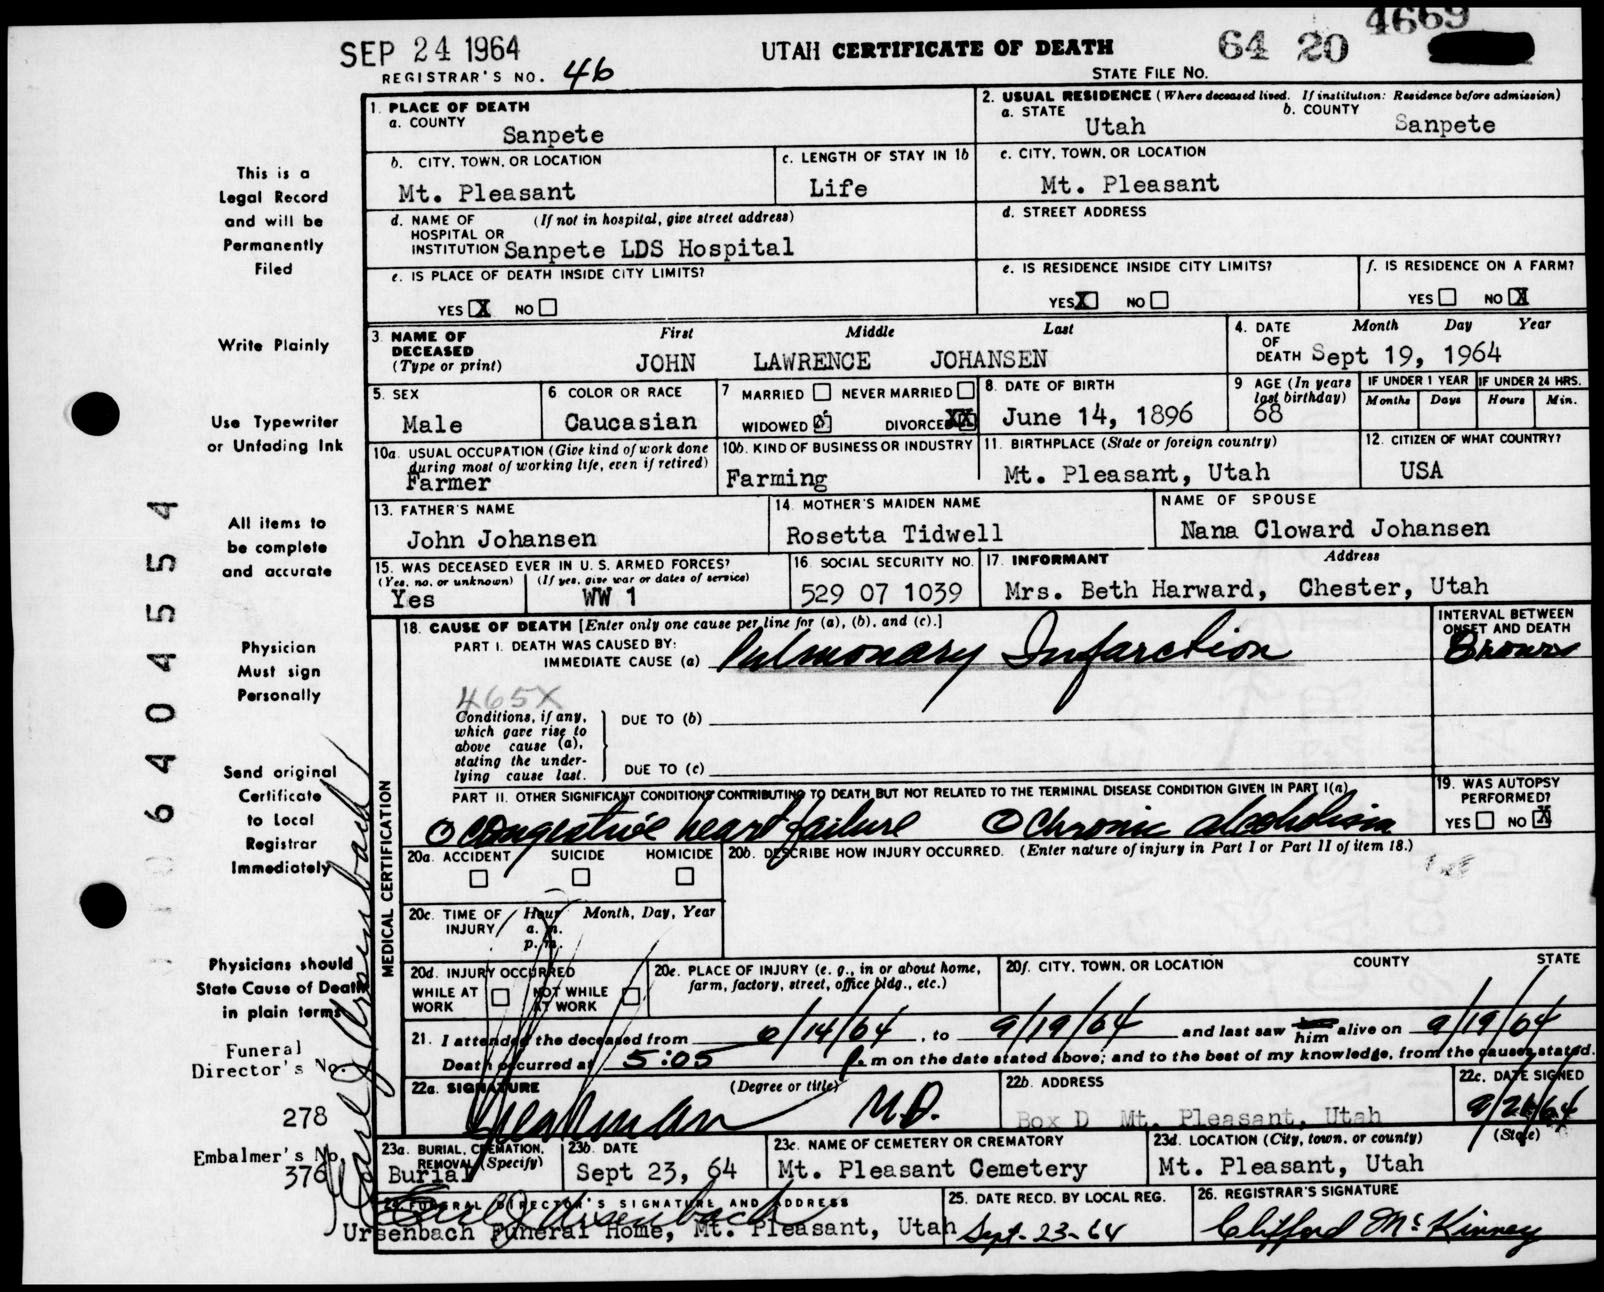 4669
SEP 24 1964
UTAH CERTIFICATE OF DEATH
64 20
REGISTRAR'S NO. 46
STATE FILE NO.
This is a
Legal Record
and will be
Permanently
Filed
Write Plainly
Use Typewriter
or Unfading Ink
All items to
be complete
and accurate
Physician
Must sign
Personally
Send original
Certificate
to Local
Registrar
Immediately
Physicians should
State Cause of Death
in plain terms
Funeral
Director's No.
278
Embalmer's No.
376
6404554
1. PLACE OF DEATH
a. COUNTY
Sanpete
2. USUAL RESIDENCE (Where deceased lived. If institution: Residence before admission)
a. STATE
Utah
b. COUNTY
Sanpete
b. CITY, TOWN, OR LOCATION
Mt. Pleasant
c. LENGTH OF STAY IN 1b
Life
c. CITY, TOWN, OR LOCATION
Mt. Pleasant
d. NAME OF (If not in hospital, give street address)
HOSPITAL OR
INSTITUTION Sanpete LDS Hospital
d. STREET ADDRESS
e. IS PLACE OF DEATH INSIDE CITY LIMITS?
YES X NO
e. IS RESIDENCE INSIDE CITY LIMITS?
YES X NO
f. IS RESIDENCE ON A FARM?
YES NO X
3. NAME OF DECEASED
(Type or print)
First Middle Last
JOHN LAWRENCE JOHANSEN
4. DATE OF DEATH
Month Day Year
Sept 19, 1964
5. SEX
Male
6 COLOR OR RACE
Caucasian
7 MARRIED NEVER MARRIED
WIDOWED DIVORCED XX
8. DATE OF BIRTH
June 14, 1896
9 AGE (In years
last birthday)
68
IF UNDER 1 YEAR
Months Days
IF UNDER 24 HRS.
Hours Min.
10a. USUAL OCCUPATION (Give kind of work done
during most of working life, even if retired)
Farmer
10b. KIND OF BUSINESS OR INDUSTRY
Farming
11. BIRTHPLACE (State or foreign country)
Mt. Pleasant, Utah
12. CITIZEN OF WHAT COUNTRY?
USA
13. FATHER'S NAME
John Johansen
14. MOTHER'S MAIDEN NAME
Rosetta Tidwell
NAME OF SPOUSE
Nana Cloward Johansen
15. WAS DECEASED EVER IN U. S. ARMED FORCES?
(Yes, no, or unknown) (If yes, give war or dates of service)
Yes WW 1
16. SOCIAL SECURITY NO.
529 07 1039
17. INFORMANT Address
Mrs. Beth Harward, Chester, Utah
MEDICAL CERTIFICATION
18. CAUSE OF DEATH [Enter only one cause per line for (a), (b), and (c).]
PART I. DEATH WAS CAUSED BY:
IMMEDIATE CAUSE (a) Pulmonary Infarction
INTERVAL BETWEEN
ONSET AND DEATH
465X
Conditions, if any,
which gave rise to
above cause (a),
stating the under-
lying cause last.
DUE TO (b)
DUE TO (c)
PART II. OTHER SIGNIFICANT CONDITIONS CONTRIBUTING TO DEATH BUT NOT RELATED TO THE TERMINAL DISEASE CONDITION GIVEN IN PART I(a)
① Congestive heart failure ② Chronic alcoholism
19. WAS AUTOPSY
PERFORMED?
YES NO X
20a. ACCIDENT SUICIDE HOMICIDE
20b. DESCRIBE HOW INJURY OCCURRED. (Enter nature of injury in Part I or Part II of item 18.)
20c. TIME OF INJURY
Hour Month, Day, Year
a. m.
p. m.
20d. INJURY OCCURRED
WHILE AT WORK NOT WHILE AT WORK
20e. PLACE OF INJURY (e. g., in or about home,
farm, factory, street, office bldg., etc.)
20f. CITY, TOWN, OR LOCATION COUNTY STATE
21. I attended the deceased from /14/64, to 9/19/64 and last saw him alive on 9/19/64
Death occurred at 5:05 P. m on the date stated above; and to the best of my knowledge, from the causes stated.
22a. SIGNATURE (Degree or title)
M.D.
22b. ADDRESS
Box D Mt. Pleasant, Utah
22c. DATE SIGNED
23a. BURIAL, CREMATION,
REMOVAL (Specify)
Burial
23b. DATE
Sept 23, 64
23c. NAME OF CEMETERY OR CREMATORY
Mt. Pleasant Cemetery
23d. LOCATION (City, town, or county) (State)
Mt. Pleasant, Utah
24. FUNERAL DIRECTOR'S SIGNATURE AND ADDRESS
Ursenbach Funeral Home, Mt. Pleasant, Utah
25. DATE RECD. BY LOCAL REG.
Sept-23-64
26. REGISTRAR'S SIGNATURE
Clifford McKinney